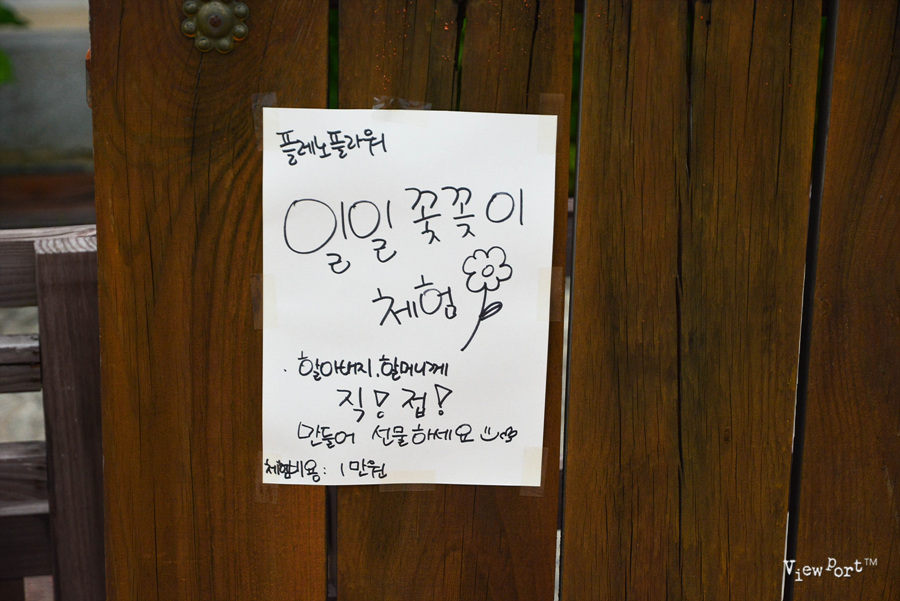 플레노플라워
일일 꽃꽂이
체험
· 할아버지, 할머니께
직! 접!
만들어 선물하세요
체험비용 : 1만원
View Port™